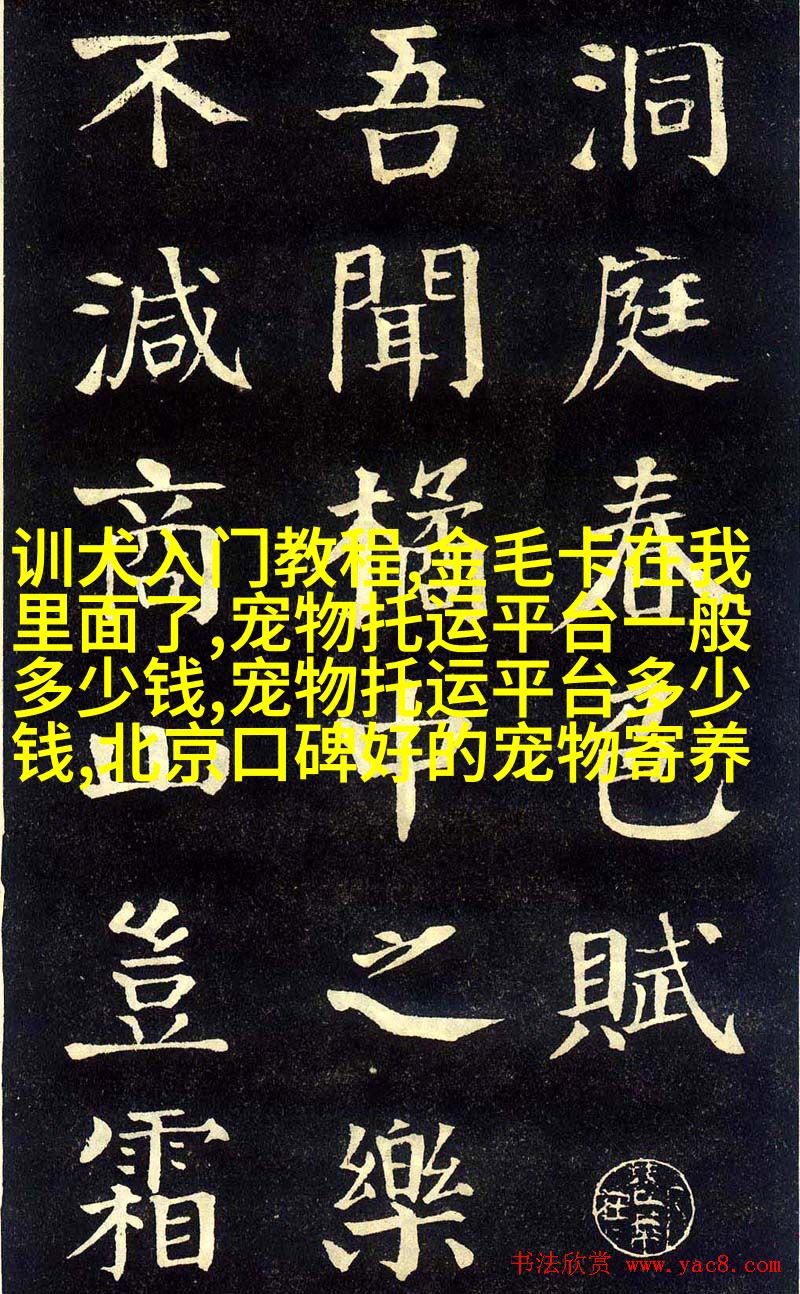 洞庭春色賦
吾聞橘中之樂
不減商山豈霜
训犬入门教程,金毛卡在我
里面了,宠物托运平台一般
多少钱,宠物托运平台多少
钱,北京口碑好的宠物寄养
书法欣赏 www.yac8.com